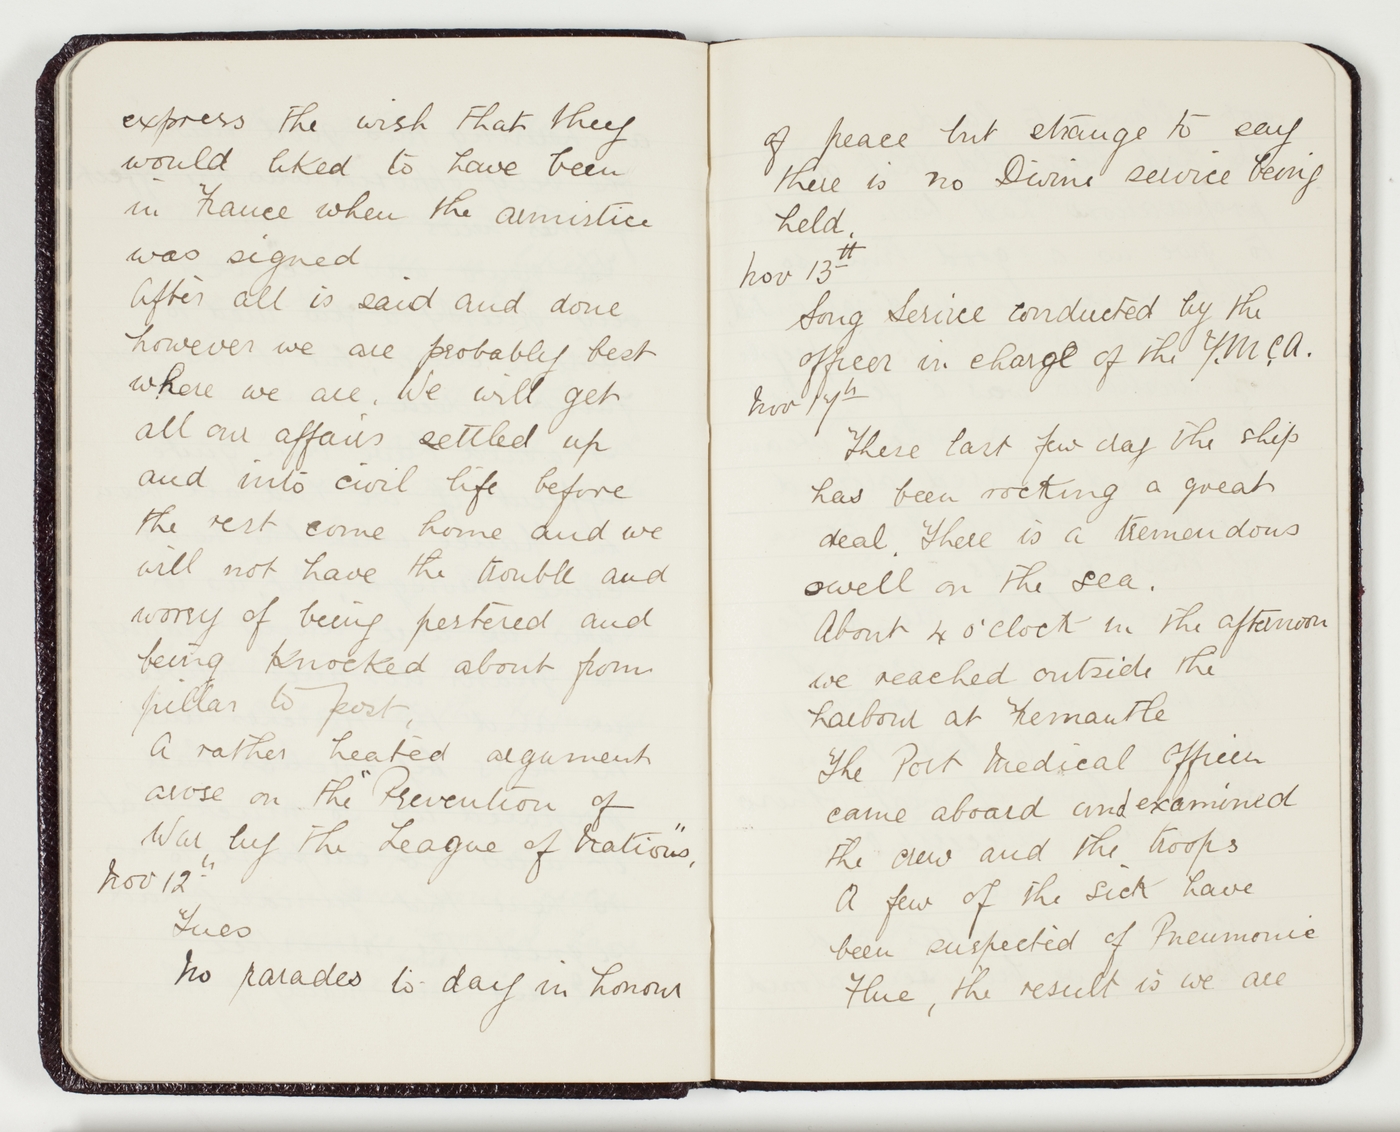 express the wish that they
would liked to have been
in France when the armistice
was signed
After all is said and done
however we are probably best
where we are. We will get
all our affairs settled up
and into civil life before
the rest come home and we
will not have the trouble and
worry of being pestered and
being knocked about from
pillar to post.
A rather heated argument
arose on the "Prevention of
War by the League of Nations",
Nov 12th
Tues
No parades to-day in honour
of peace but strange to say
there is no Divine service being
held.
Nov 13th
Song Service conducted by the
officer in charge of the Y.M.C.A.
Nov 17th
These last few day the ship
has been rocking a great
deal. There is a tremendous
swell on the sea.
About 4 o'clock in the afternoon
we reached outside the
harbour at Fremantle
The Port Medical Officer
came aboard and examined
the crew and the troops
A few of the sick have
been suspected of Pneumonic
Flue, the result is we are